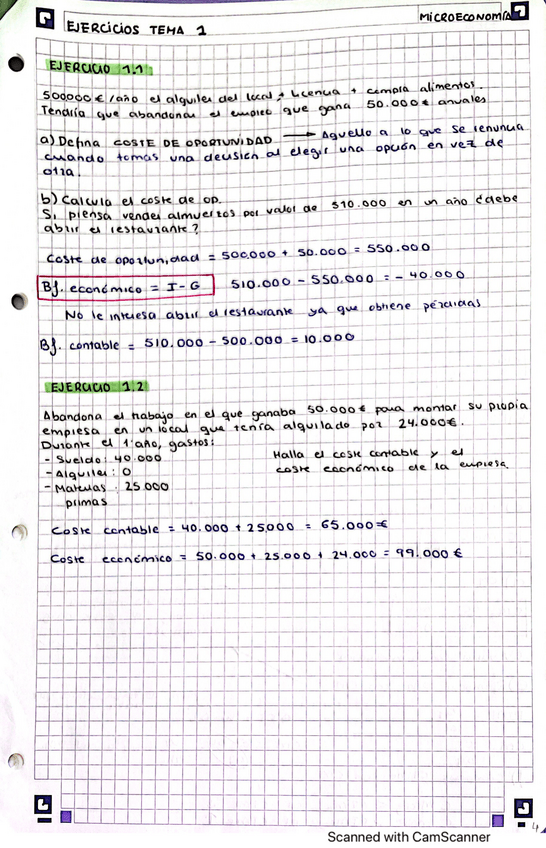 EJERCICIOS TEMA 1
MICROECONOMÍA
EJERCICIO 1.1
500000€/año el alquiler del local + Licencia + compra alimentos.
Tendría que abandonar el empleo que gana 50.000€ anuales
a) Defina COSTE DE OPORTUNIDAD → Aquello a lo que se renuncia
cuando tomas una decisión al elegir una opción en vez de
otra.
b) Calcula el coste de op.
Si piensa vender almuerzos por valor de 510.000 en un año ¿debe
abrir el restaurante?
Coste de oportunidad = 500.000 + 50.000 = 550.000
Bf. económico = I-G 510.000 - 550.000 = - 40.000
No le interesa abrir el restaurante ya que obtiene pérdidas
Bf. contable = 510.000 - 500.000 = 10.000
EJERCICIO 1.2
Abandona el trabajo en el que ganaba 50.000€ para montar su propia
empresa en un local que tenía alquilado por 24.000€.
Durante el 1º año, gastos:
- Sueldo: 40.000
- Alquiler: 0
- Materias : 25.000
primas
Halla el coste contable y el
coste económico de la empresa.
Coste contable = 40.000 + 25000 = 65.000€
Coste económico = 50.000 + 25.000 + 24.000 = 99.000€
Scanned with CamScanner